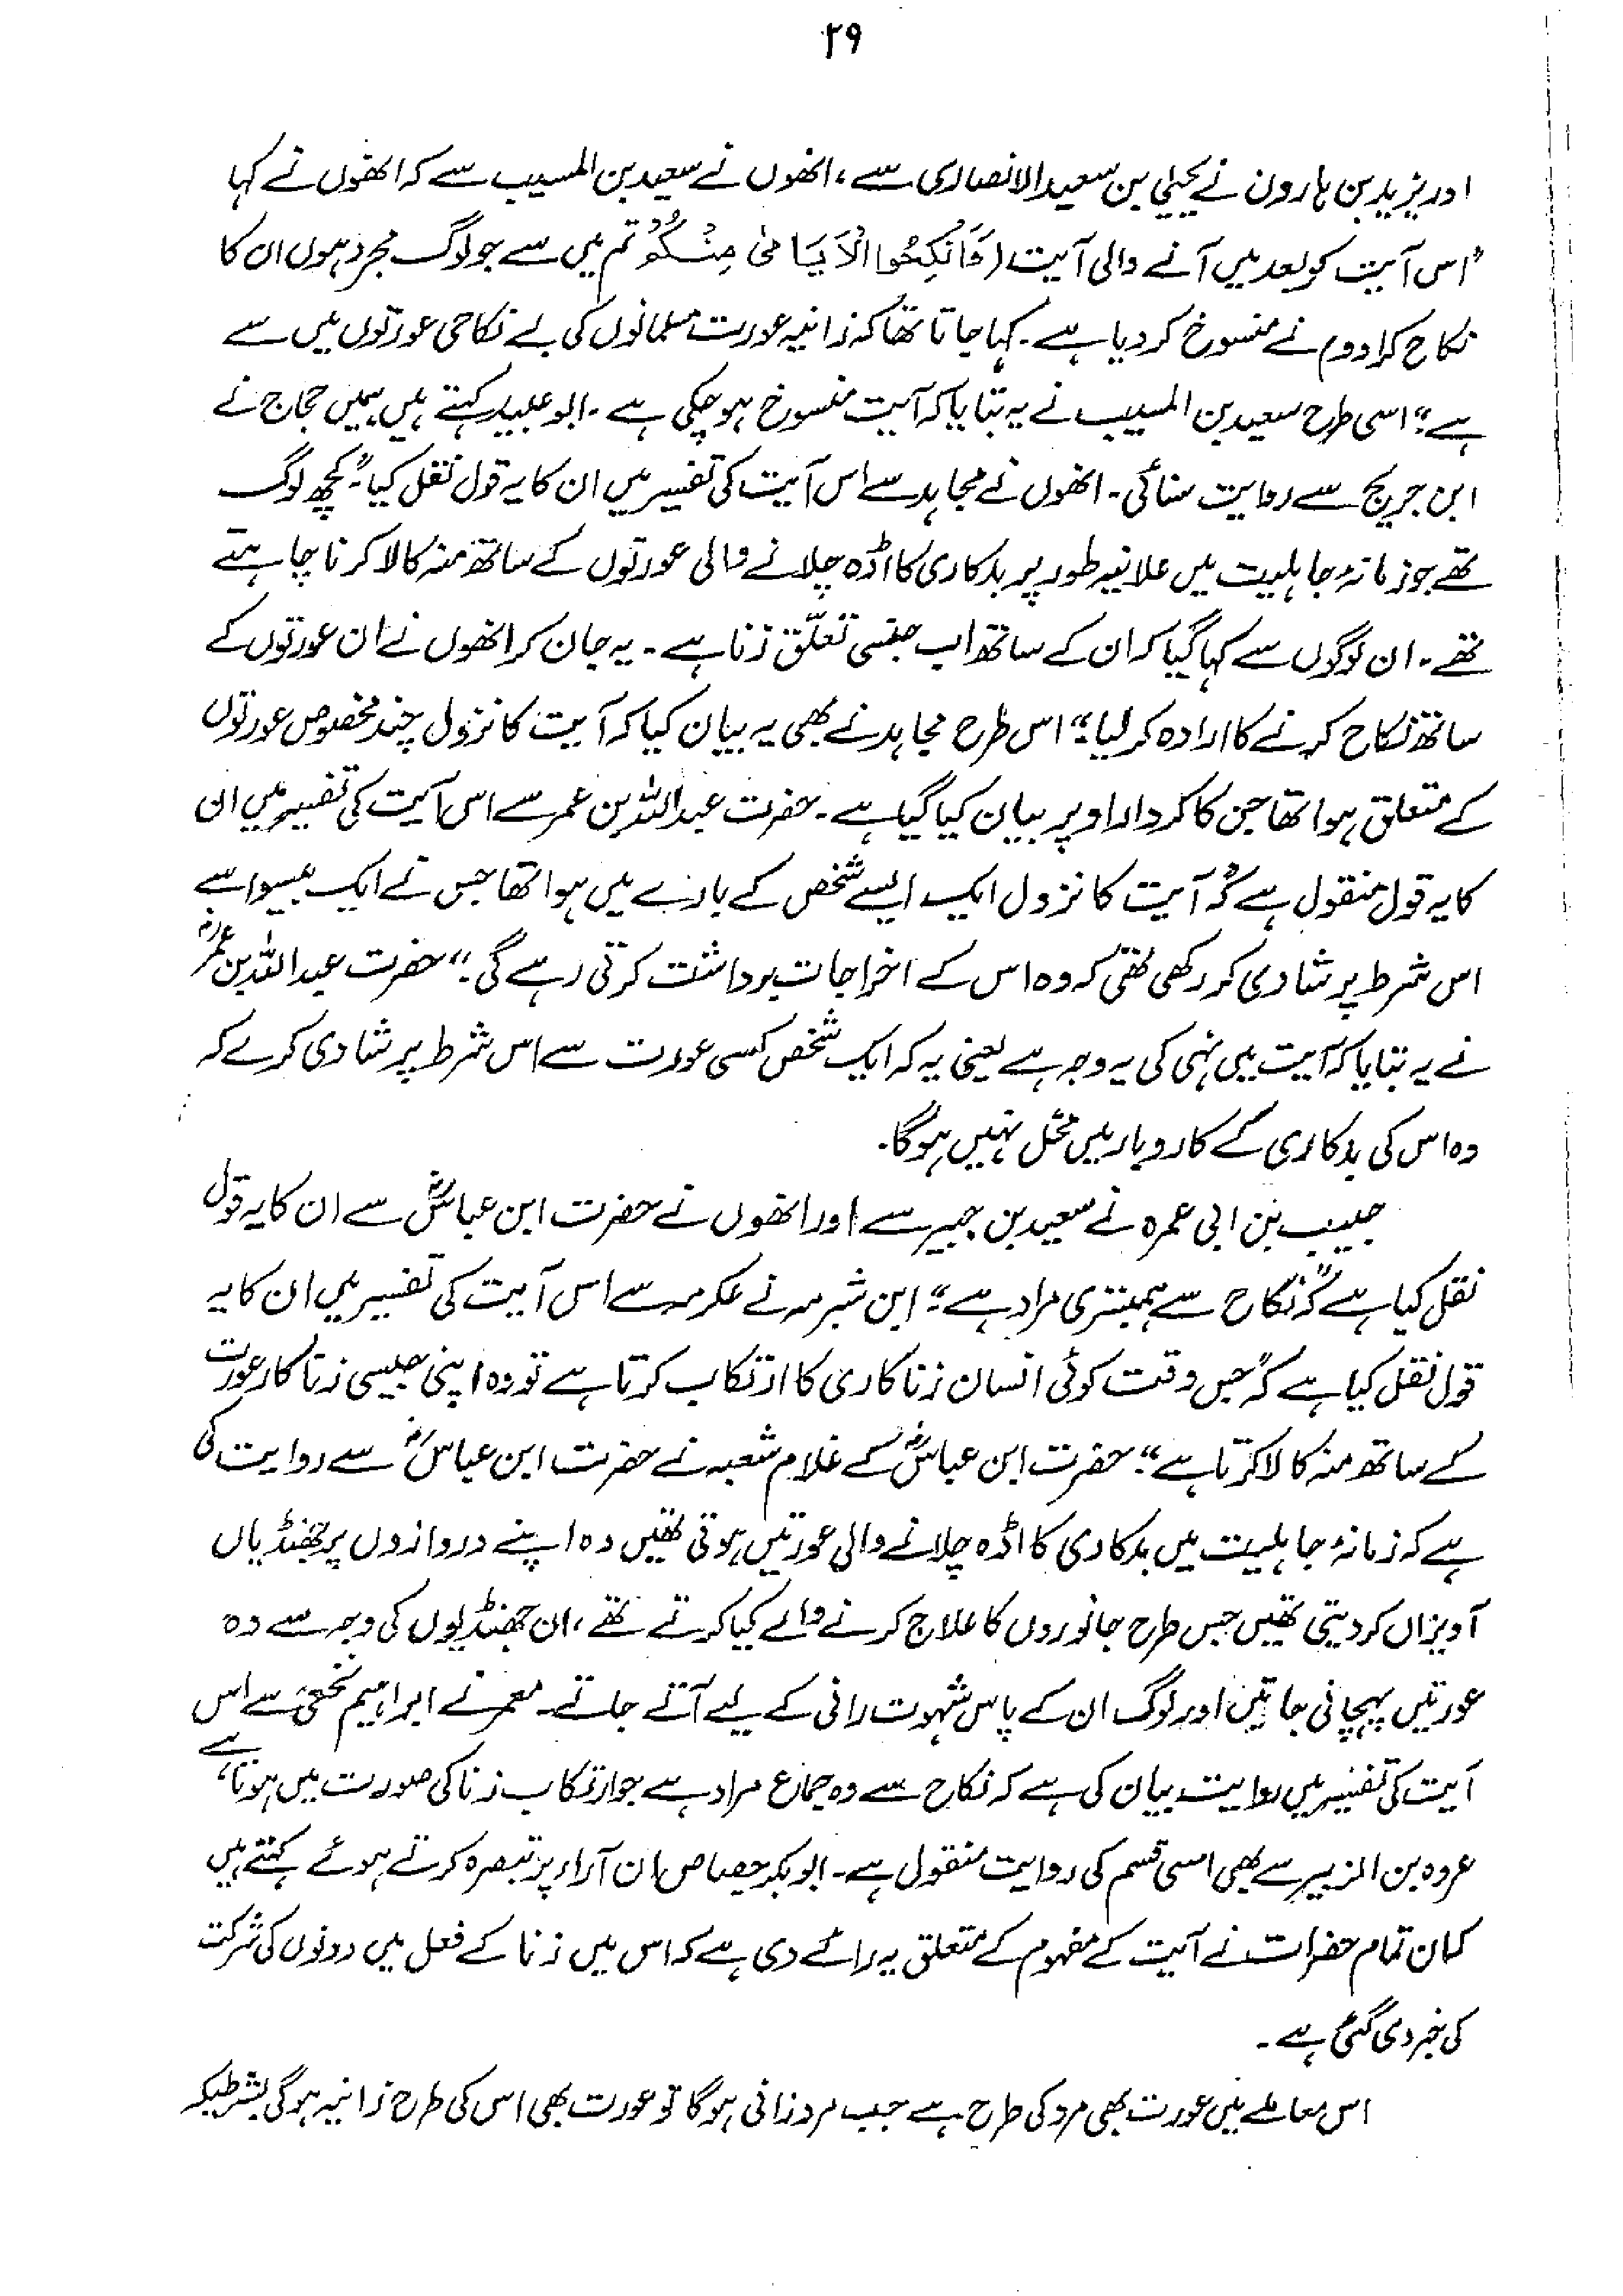 ۲۹
اور یزید بن ہارون نے یحییٰ بن سعید الانصاری سے، انھوں نے سعید بن المسیب سے کہ انھوں نے کہا
"اس آیت کو بعد میں آنے والی آیت (وَاَنْكِحُوا الْاَيَامٰى مِنْكُمْ تم میں سے جو لوگ مجرد ہوں ان کا
نکاح کرا دو) نے منسوخ کر دیا ہے۔ کہا جاتا تھا کہ زانیہ عورت مسلمانوں کی بے نکاحی عورتوں میں سے
ہے" اسی طرح سعید بن المسیب نے یہ بتایا کہ آیت منسوخ ہو چکی ہے۔ ابو عبید کہتے ہیں ہمیں حجاج نے
ابن جریج سے روایت سنائی۔ انھوں نے مجاہد سے اس آیت کی تفسیر میں ان کا یہ قول نقل کیا" کچھ لوگ
تھے جو زمانۂ جاہلیت میں علانیہ طور پر بدکاری کا اڈہ چلانے والی عورتوں کے ساتھ منہ کالا کرنا چاہتے
تھے۔ ان لوگوں سے کہا گیا کہ ان کے ساتھ اب جنسی تعلّق زنا ہے۔ یہ جان کر انھوں نے ان عورتوں کے
ساتھ نکاح کرنے کا ارادہ کر لیا" اس طرح مجاہد نے بھی یہ بیان کیا کہ آیت کا نزول چند مخصوص عورتوں
کے متعلق ہوا تھا جن کا کردار اوپر بیان کیا گیا ہے۔ حضرت عبداللہ بن عمر سے اس آیت کی تفسیر میں ان
کا یہ قول منقول ہے کہ" آیت کا نزول ایک ایسے شخص کے بارے میں ہوا تھا جس نے ایک بیسوا سے
اس شرط پر شادی کر رکھی تھی کہ وہ اس کے اخراجات برداشت کرتی رہے گی۔" حضرت عبداللہ بن عمرؓ
نے یہ بتایا کہ آیت میں نہی کی یہ وجہ ہے یعنی یہ کہ ایک شخص کسی عورت سے اس شرط پر شادی کرے کہ
وہ اس کی بدکاری کے کاروبار میں مخل نہیں ہوگا۔
حبیب بن ابی عمرہ نے سعید بن جبیر سے اور انھوں نے حضرت ابن عباسؓ سے ان کا یہ قول
نقل کیا ہے کہ" نکاح سے ہمبستری مراد ہے" ابن شبرمہ نے عکرمہ سے اس آیت کی تفسیر میں ان کا یہ
قول نقل کیا ہے کہ" جس وقت کوئی انسان زنا کاری کا ارتکاب کرتا ہے تو وہ اپنی جیسی زنا کار عورت
کے ساتھ منہ کالا کرتا ہے" حضرت ابن عباسؓ کے غلام شعبہ نے حضرت ابن عباسؓ سے روایت کی
ہے کہ زمانۂ جاہلیت میں بدکاری کا اڈہ چلانے والی عورتیں ہوتی تھیں وہ اپنے دروازوں پر جھنڈیاں
آویزاں کر دیتی تھیں جس طرح جانوروں کا علاج کرنے والے کیا کرتے تھے، ان جھنڈیوں کی وجہ سے وہ
عورتیں پہچانی جاتیں اور لوگ ان کے پاس شہوت رانی کے لیے آتے جاتے۔ معمر نے ابراہیم نخعی سے اس
آیت کی تفسیر میں روایت بیان کی ہے کہ نکاح سے وہ جماع مراد ہے جو ارتکاب زنا کی صورت میں ہوتا ہے،
عروہ بن الزبیر سے بھی اسی قسم کی روایت منقول ہے۔ ابوبکر جصاص ان آراء پر تبصرہ کرتے ہوئے کہتے ہیں
کہ ان تمام حضرات نے آیت کے مفہوم کے متعلق یہ رائے دی ہے کہ اس میں زنا کے فعل میں دونوں کی شرکت
کی خبر دی گئی ہے۔
اس معاملے میں عورت بھی مرد کی طرح ہے جب مرد زانی ہوگا تو عورت بھی اس کی طرح زانیہ ہوگی بشرطیکہ